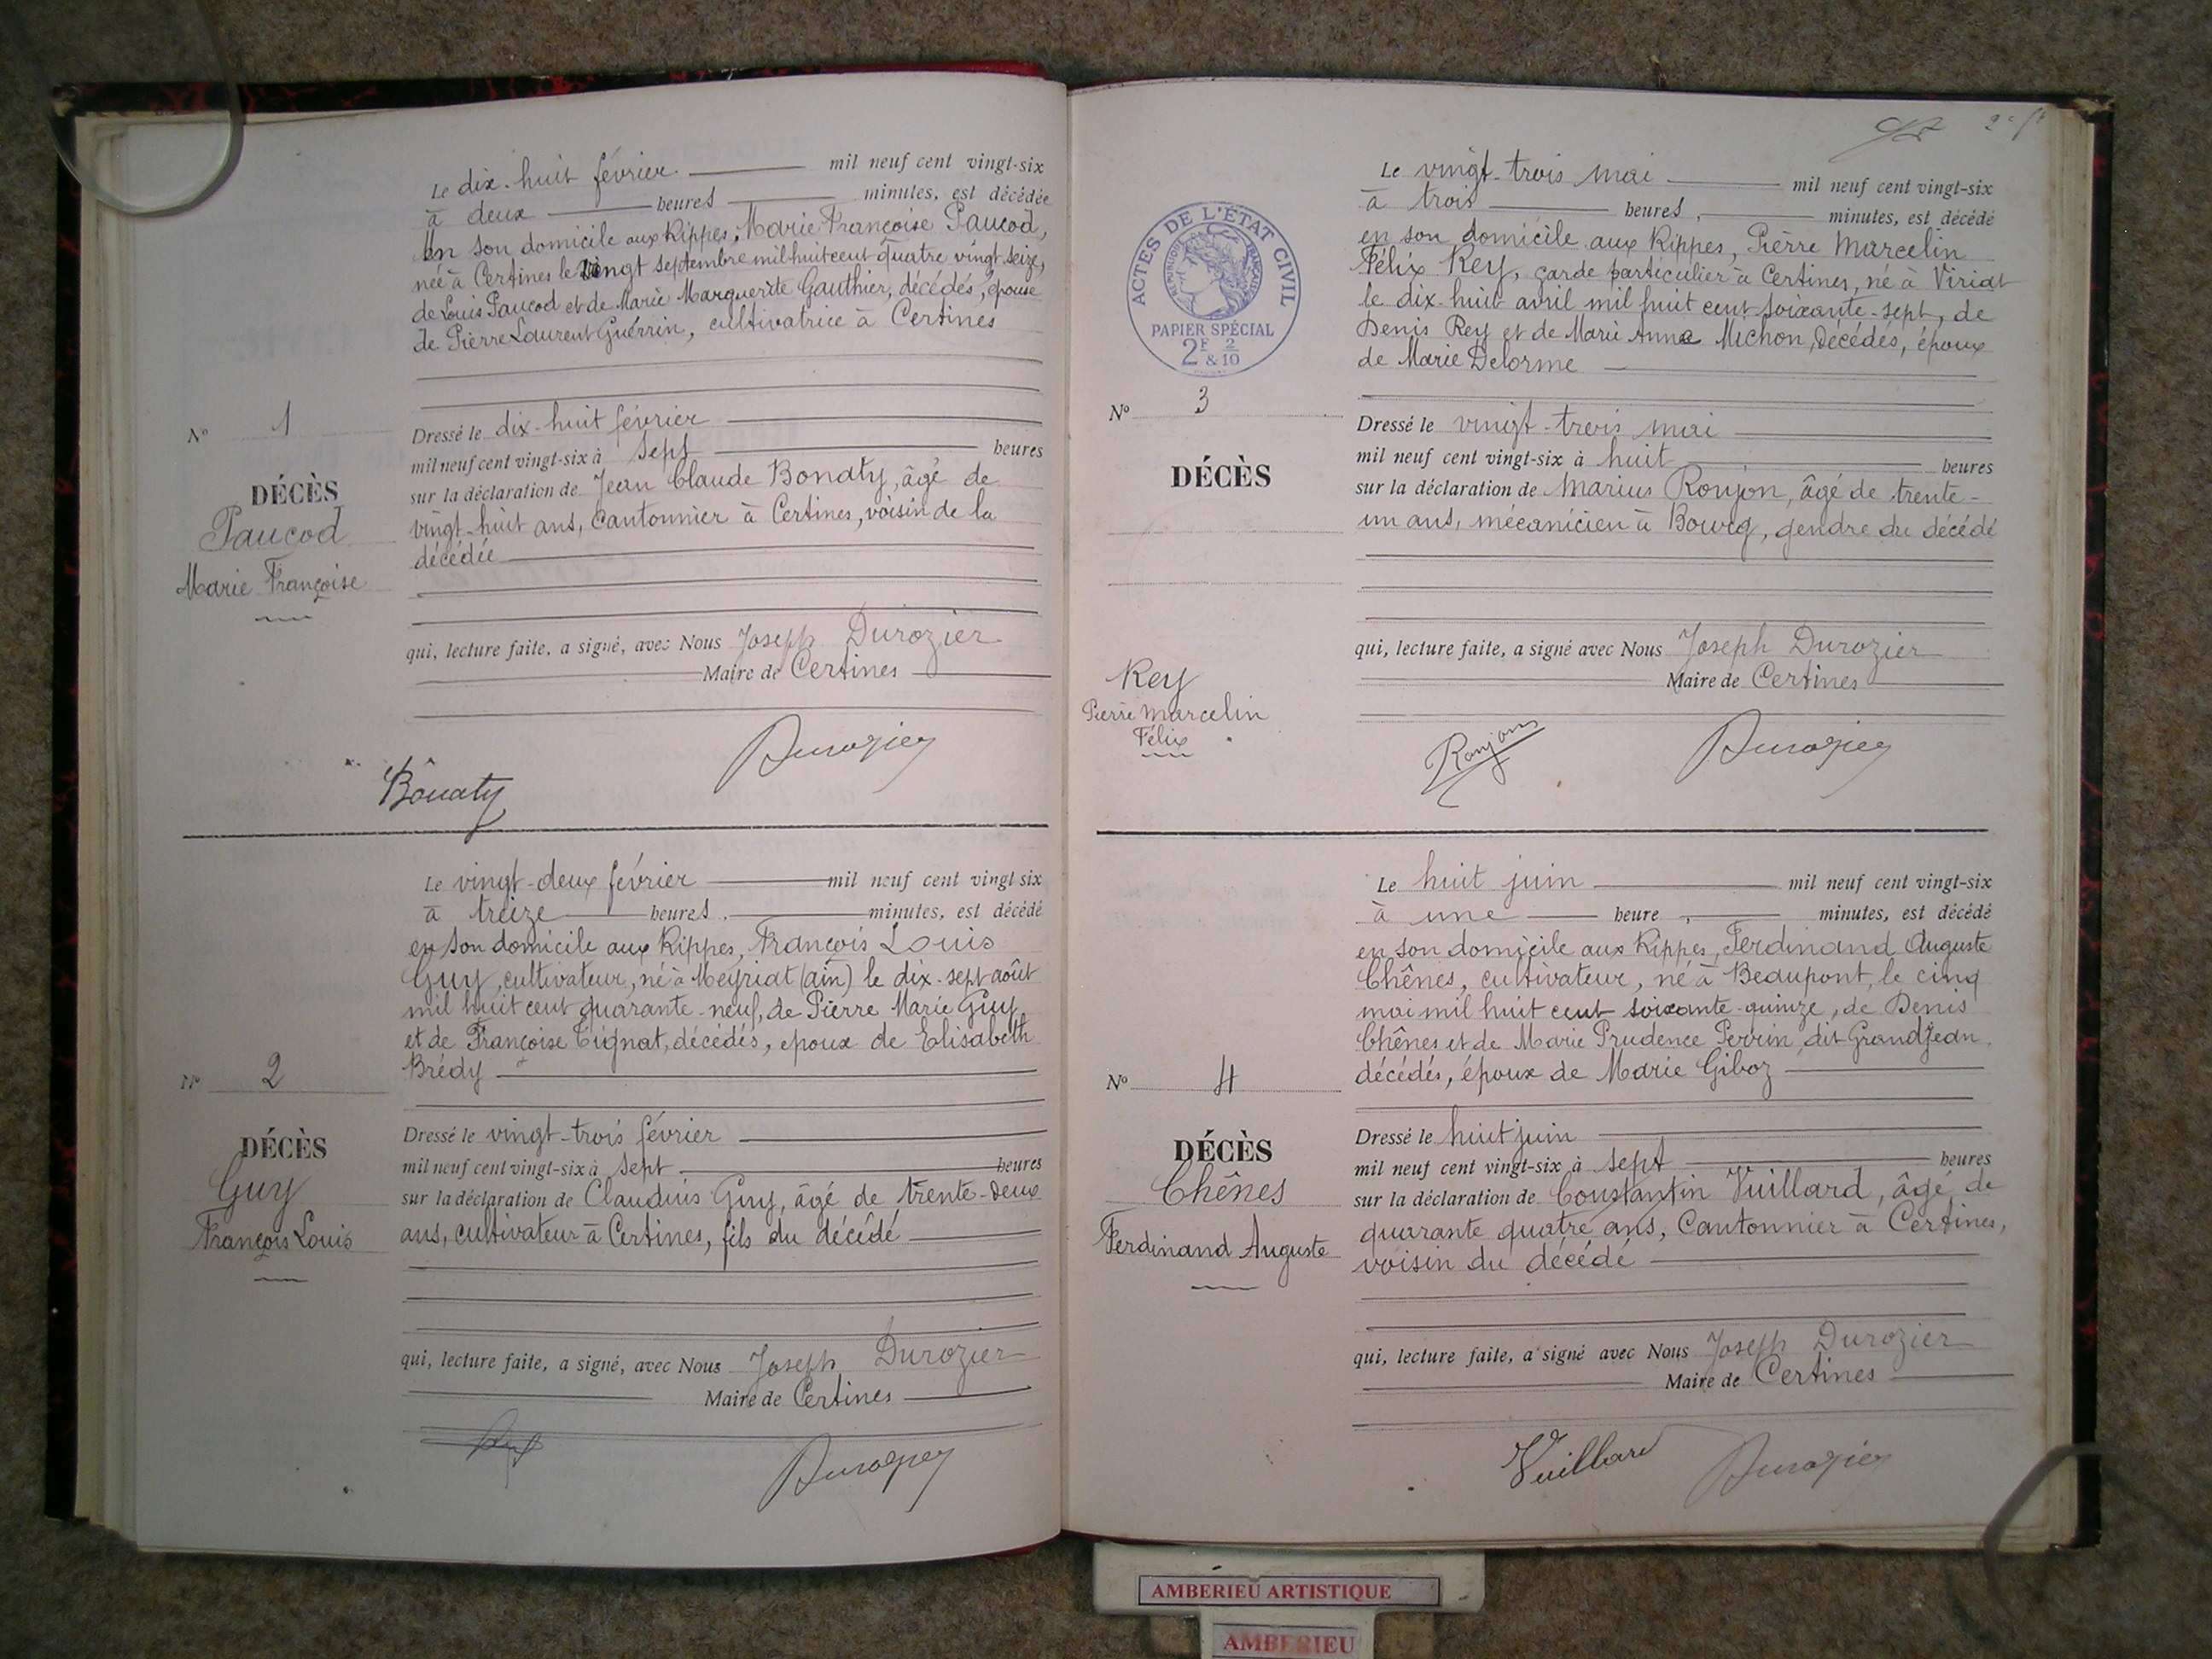 Le dix-huit février mil neuf cent vingt-six
à deux heures minutes, est décédée
en son domicile aux Rippes, Marie Françoise Paucod,
née à Certines le vingt septembre mil huit cent quatre vingt seize,
de Louis Paucod et de Marie Marguerite Gauthier, décédés, épouse
de Pierre Laurent Guérrin, cultivatrice à Certines
Nº 1
DÉCÈS
Paucod
Marie Françoise
Dressé le dix-huit février
mil neuf cent vingt-six à sept heures
sur la déclaration de Jean Claude Bonaty, âgé de
vingt-huit ans, cantonnier à Certines, voisin de la
décédée
qui, lecture faite, a signé, avec Nous Joseph Durozier
Maire de Certines
Bonaty Durozier
Le vingt-deux février mil neuf cent vingt six
à treize heures minutes, est décédé
en son domicile aux Rippes, François Louis
Guy, cultivateur, né à Meyriat (ain) le dix-sept août
mil huit cent quarante-neuf, de Pierre Marie Guy
et de Françoise Tignat, décédés, époux de Elisabeth
Brédy
Nº 2
DÉCÈS
Guy
François Louis
Dressé le vingt-trois février
mil neuf cent vingt-six à sept heures
sur la déclaration de Claudius Guy, âgé de trente-deux
ans, cultivateur à Certines, fils du décédé
qui, lecture faite, a signé, avec Nous Joseph Durozier
Maire de Certines
Guy Durozier
ACTES DE L'ÉTAT CIVIL
RÉPUBLIQUE FRANÇAISE
PAPIER SPÉCIAL
2F & 2/10
Le vingt-trois mai mil neuf cent vingt-six
à trois heures, minutes, est décédé
en son domicile aux Rippes, Pierre Marcelin
Félix Rey, garde particulier à Certines, né à Viriat
le dix-huit avril mil huit cent soixante-sept, de
Denis Rey et de Marie Anna Michon, décédés, époux
de Marie Delorme
Nº 3
DÉCÈS
Rey
Pierre Marcelin
Félix
Dressé le vingt-trois mai
mil neuf cent vingt-six à huit heures
sur la déclaration de Marius Roujon, âgé de trente-
un ans, mécanicien à Bourg, gendre du décédé
qui, lecture faite, a signé avec Nous Joseph Durozier
Maire de Certines
Roujon Durozier
Le huit juin mil neuf cent vingt-six
à une heure, minutes, est décédé
en son domicile aux Rippes, Ferdinand Auguste
Chênes, cultivateur, né à Beaupont, le cinq
mai mil huit cent soixante-quinze, de Denis
Chênes et de Marie Prudence Perrin, dit Grandjean
décédés, époux de Marie Giboz
Nº 4
DÉCÈS
Chênes
Ferdinand Auguste
Dressé le huit juin
mil neuf cent vingt-six à sept heures
sur la déclaration de Constantin Vuillard, âgé de
quarante quatre ans, Cantonnier à Certines,
voisin du décédé
qui, lecture faite, a signé avec Nous Joseph Durozier
Maire de Certines
Vuillard Durozier
AMBERIEU ARTISTIQUE
AMBERIEU